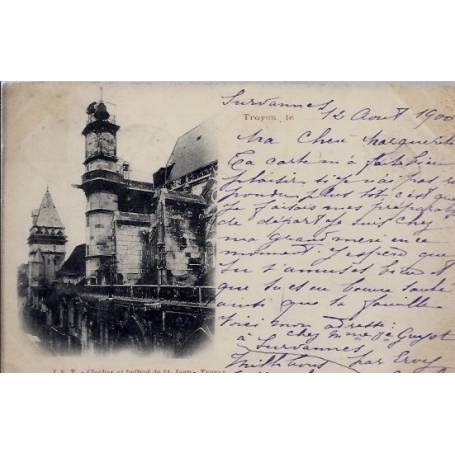 Survannes
Troyes, le 12 Août 1900
Ma chère Marguerite
Ta carte m'a fait bien
plaisir si je n'ai pas ré
pondre plus tôt c'est que
je faisais mes préparat
de départ je suis chez
ma Grand mère en ce
moment. J'espère que
tu t'amuses bien et
que tu es en bonne santé
ainsi que ta famille
Voici mon adresse:
chez Mme Guyot
à Survannes
par Ervy
J. E. T. - Clocher et beffroi de St Jean - Troyes